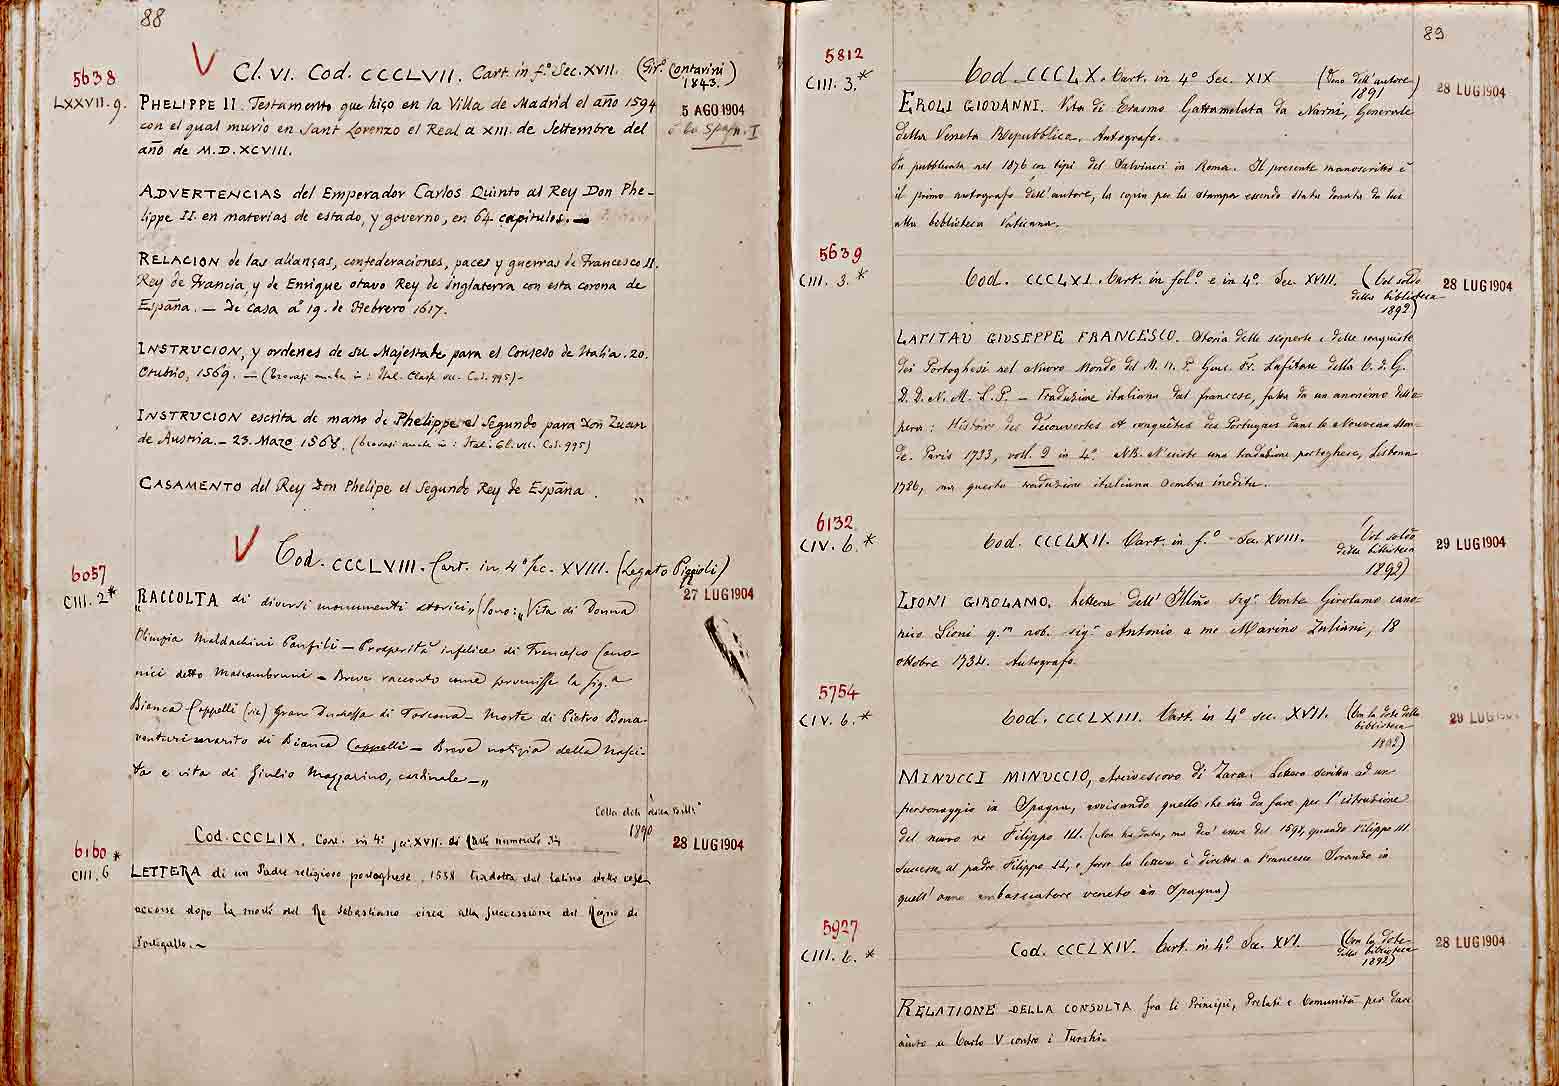 88
V
5638
LXXVII.9.
Cl. VI. Cod. CCCLVII. Cart. in f.º Sec. XVII. (Gir.º Contarini)
1843.
PHELIPPE II. Testamento que hiço en la Villa de Madrid el año 1594
5 AGO 1904
con el qual murio en Sant Lorenzo el Real a XIII. de Settembre del
año de M.D.XCVIII.
ADVERTENCIAS del Emperador Carlos Quinto al Rey Don Phe-
lippe II. en materias de estado, y governo, en 64 capitulos. —
RELACION de las alianças, confederaciones, paces y guerras de Francesco II.
Rey de Francia, y de Enrique otavo Rey de Inglaterra con esta corona de
España. — De casa a 19. de Hebrero 1617.
INSTRUCION, y ordenes de su Majestade para el Conseo de Italia. 20.
Otubrio, 1569. — (Trovasi anche in: Ital. Classe VII. Cod. 995) -
INSTRUCION escrita de mano de Phelippe el Segundo para Don Zuan
de Austria. — 23. Mazo 1568. (Trovasi anche in: Ital. Cl. VII. Cod. 995)
CASAMENTO del Rey Don Phelipe el Segundo Rey de España.
V
6057
CIII. 2*
Cod. CCCLVIII. Cart. in 4º sec. XVIII. (Legato Piggioli)
27 LUG 1904
„RACCOLTA di diversi monumenti storici„ (Sono: „Vita di Donna
Olimpia Maldachini Panfili — Prosperità infelice di Francesco Cano-
nici detto Mascambruni — Breve racconto come pervenisse la sig.a
Bianca Cappelli (sic) Gran Duchessa di Toscana — Morte di Pietro Bona-
venturi marito di Bianca Cappelli — Breve notizia della nasci-
ta e vita di Giulio Mazzarino, cardinale —„
Colla dote della Bibl.
1890
6160 *
CIII. 6
Cod. CCCLIX. Cart. in 4º sec. XVII. di Carte numerate 34
28 LUG 1904
LETTERA di un Padre religioso portoghese, 1598 tradotta dal latino delle cose
accorse dopo la morte del Re Sebastiano circa alla successione del Regno di
Portogallo. ~
89
5812
CIII. 3.*
Cod. CCCLX. Cart. in 4º Sec. XIX (Dono dell'autore)
1891
28 LUG 1904
EROLI GIOVANNI. Vita di Erasmo Gattamelata da Narni, Generale
della Veneta Repubblica. Autografo.
Fu pubblicata nel 1876 coi tipi del Salviucci in Roma. Il presente manoscritto è
il primo autografo dell'autore, la copia per la stampa essendo stata donata da lui
alla biblioteca Vaticana.
5639
CIII. 3. *
Cod. CCCLXI. Cart. in fol.º e in 4º. Sec. XVIII. (Col soldo
della biblioteca
1892)
28 LUG 1904
LAFITAU GIUSEPPE FRANCESCO. Storia delle scoperte e delle conquiste
dei Portoghesi nel Nuovo Mondo del M. R. P. Gius. Fr. Lafitau della C. d. G.
D. D. N. M. L. P. — Traduzione italiana dal francese, fatta da un anonimo dell'o-
pera: Histoire des découvertes et conquêtes des Portugais dans le Nouveau Mon-
de. Paris 1733, voll. 2 in 4º. NB. N'esiste una traduzione portoghese, Lisbona
1786, ma questa traduzione italiana sembra inedita.
6132
CIV. 6. *
Cod. CCCLXII. Cart. in f.º Sec. XVIII. (Col soldo
della biblioteca
1892)
29 LUG 1904
LIONI GIROLAMO. Lettera dell' Illmo sigr. Conte Girolamo cano-
nico Lioni q.m nob. sigr. Antonio a me Marino Zuliani, 18
ottobre 1734. Autografo.
5754
CIV. 6. *
Cod. CCCLXIII. Cart. in 4º sec. XVII. (Con la dote della
biblioteca
1892)
29 LUG 1904
MINUCCI MINUCCIO, Arcivescovo di Zara. Lettera scritta ad un
personaggio in Spagna, avvisando quello che sia da fare per l'istruzione
del nuovo re Filippo III. (Non ha data, ma dev' esser del 1598, quando Filippo III.
successe al padre Filippo II., e forse la lettera è diretta a Francesco Soranzo in
quell' anno ambasciatore veneto in Spagna)
5927
CIII. 6. *
Cod. CCCLXIV. Cart. in 4º. Sec. XVI. (Con la dote
della biblioteca
1892)
28 LUG 1904
RELATIONE DELLA CONSULTA fra li Principi, Prelati e Comunità per dare
aiuto a Carlo V contro i Turchi.